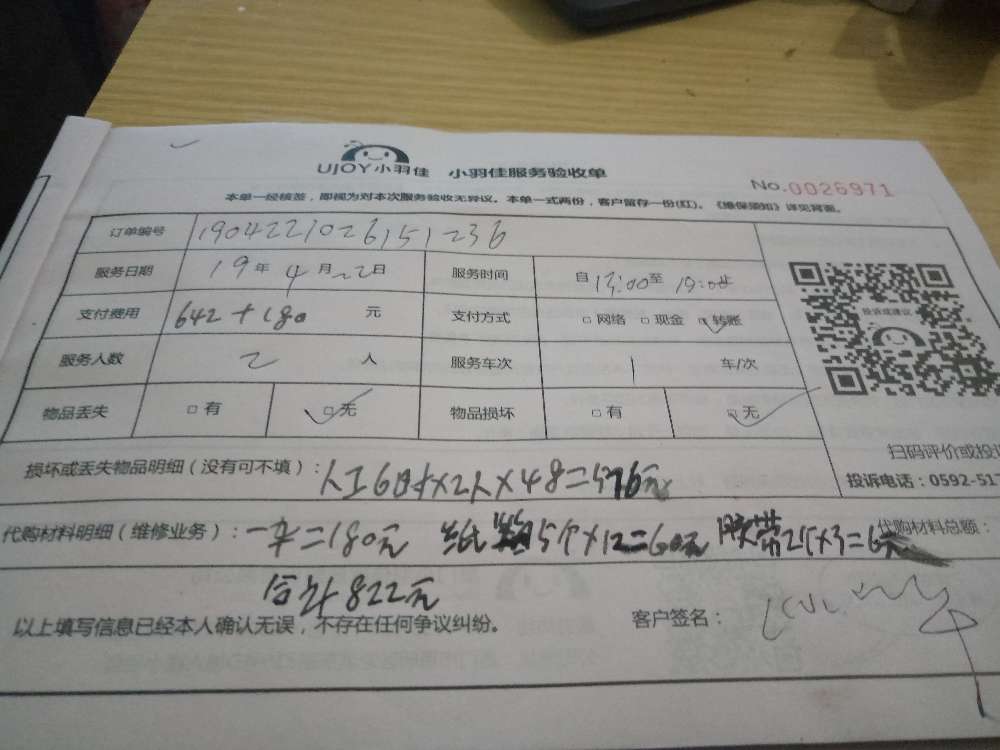 UJOY小羽佳 小羽佳服务验收单
No.0026971
本单一经核签，即视为对本次服务验收无异议。本单一式两份，客户留存一份(红)。《维保须知》详见背面。
订单编号 1904221026151236
服务日期 19年4月22日 服务时间 自13:00至19:00止
支付费用 642+180 元 支付方式 □网络 □现金 □转账
投诉或建议
服务人数 2 人 服务车次 1 车/次
物品丢失 □有 □无 物品损坏 □有 □无
扫码评价或投
损坏或丢失物品明细（没有可不填）：人工6时×2人×48=576元
投诉电话：0592-517
代购材料明细（维修业务）：一车=180元 纸箱5个×12=60元 胶带2个×3=6元 代购材料总额：
合计822元
以上填写信息已经本人确认无误，不存在任何争议纠纷。 客户签名：